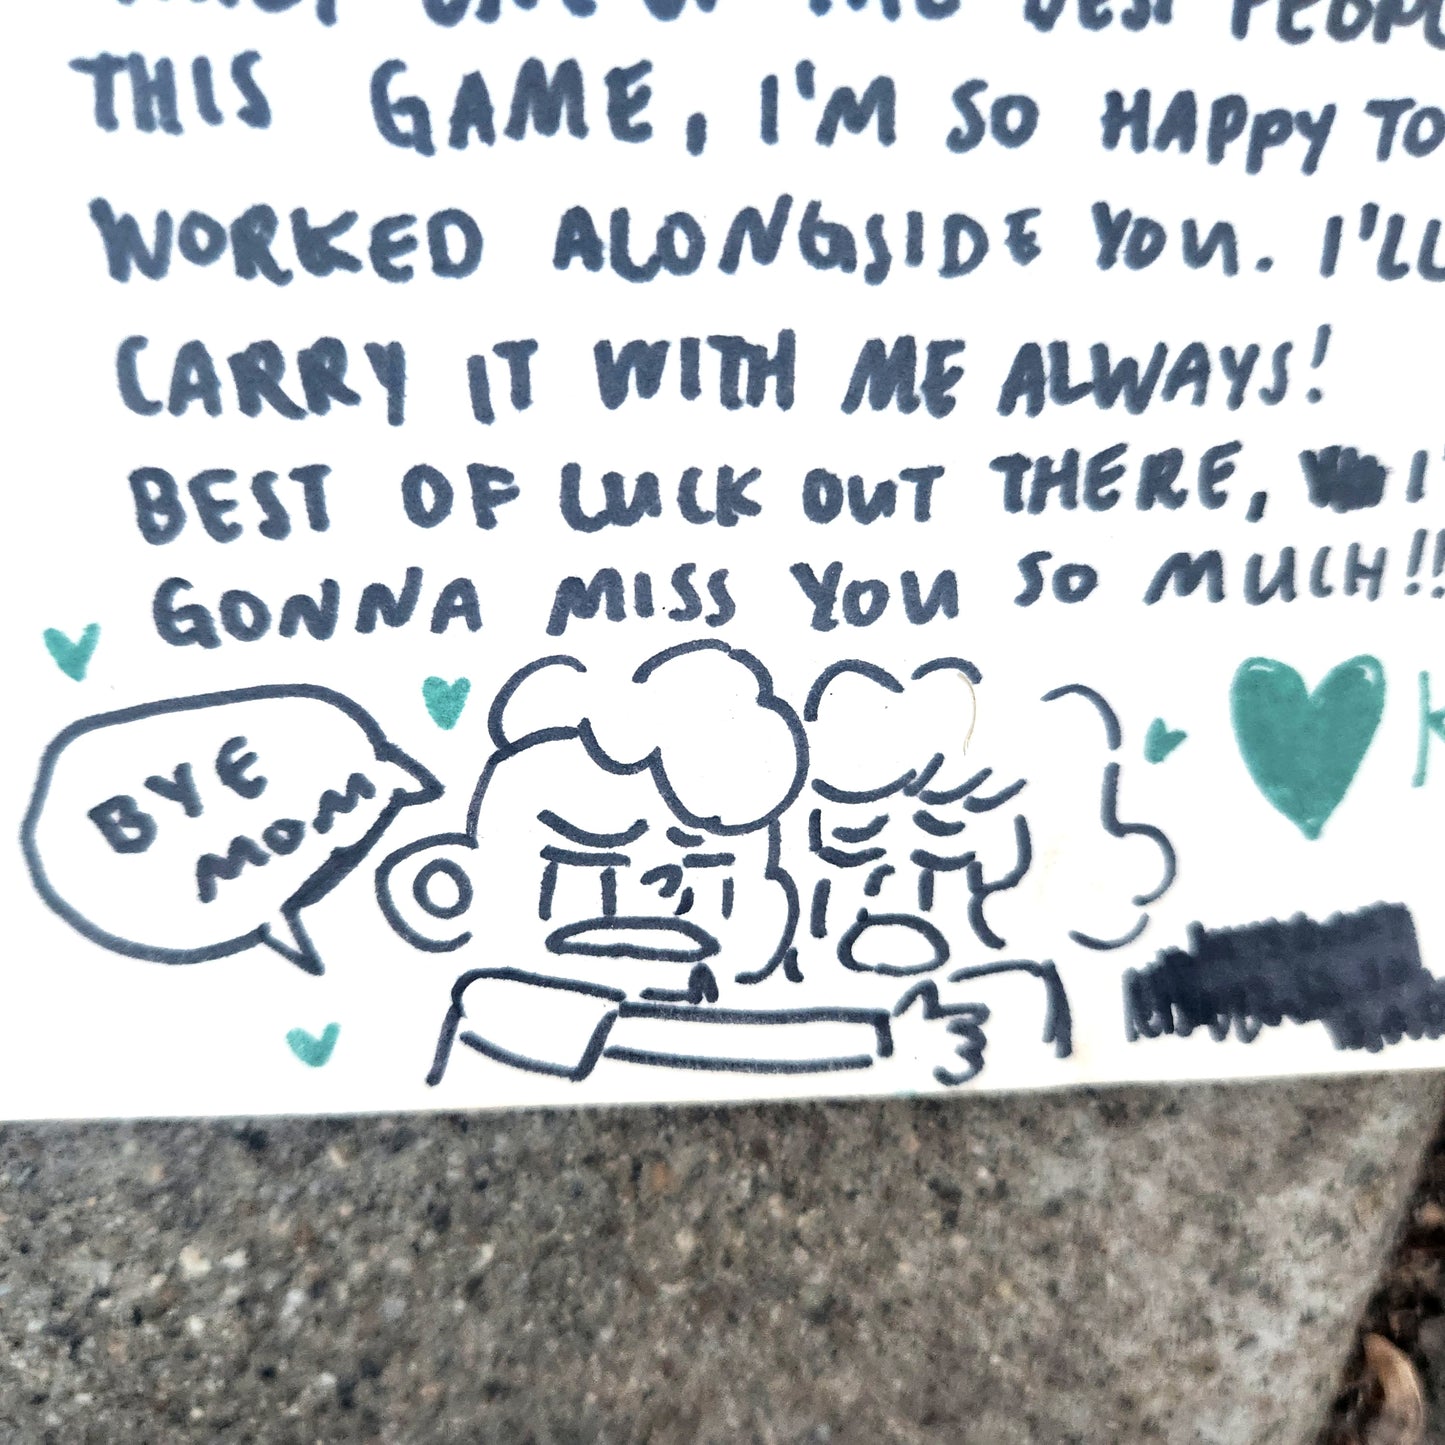 THE BEST PEOPL
THIS GAME, I'M SO HAPPY TO
WORKED ALONGSIDE YOU. I'LL
CARRY IT WITH ME ALWAYS!
BEST OF LUCK OUT THERE, I'
GONNA MISS YOU SO MUCH!!
BYE
MOM
K